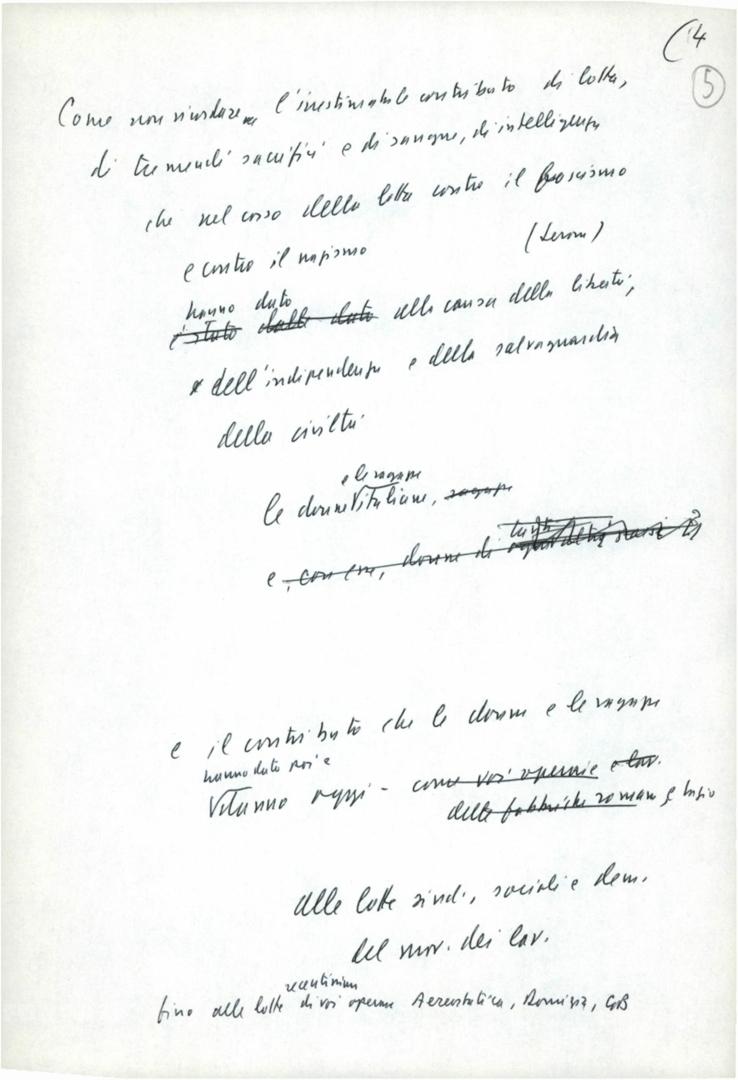 14
5
Come non ricordare l'inestimabile contributo di lotta,
di tremendi sacrifici e di sangue, di intelligenza
che nel corso della lotta contro il fascismo
e contro il nazismo
hanno dato
è stato dalle dato alla causa della libertà,
dell'indipendenza e della salvaguardia
della civiltà
e le ragazze
le donne italiane, ragazze
e, con esse, donne di
e il contributo che le donne e le ragazze
hanno dato poi e
danno oggi - come voi operaie e lav.
delle fabbriche romane
alle lotte sind., sociali e dem.
del mov. dei lav.
recentissime
fino alle lotte di voi operaie Aerostatica,